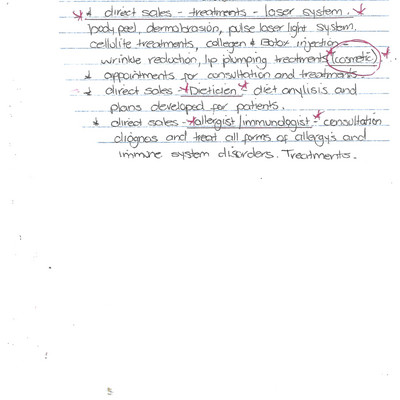 * direct sales - treatments - laser system.
body peel, dermabrasion, pulse laser light system,
cellulite treatments, collegen & Botox injection -
wrinkle reduction, lip plumping treatments (cosmetic)
* appointments for consultation and treatments
* direct sales - Dietician - diet anylisis and
plans developed for patients.
* direct sales - allergist/immunologist - consultation
diagnos and treat all forms of allergy's and
immune system disorders. Treatments.